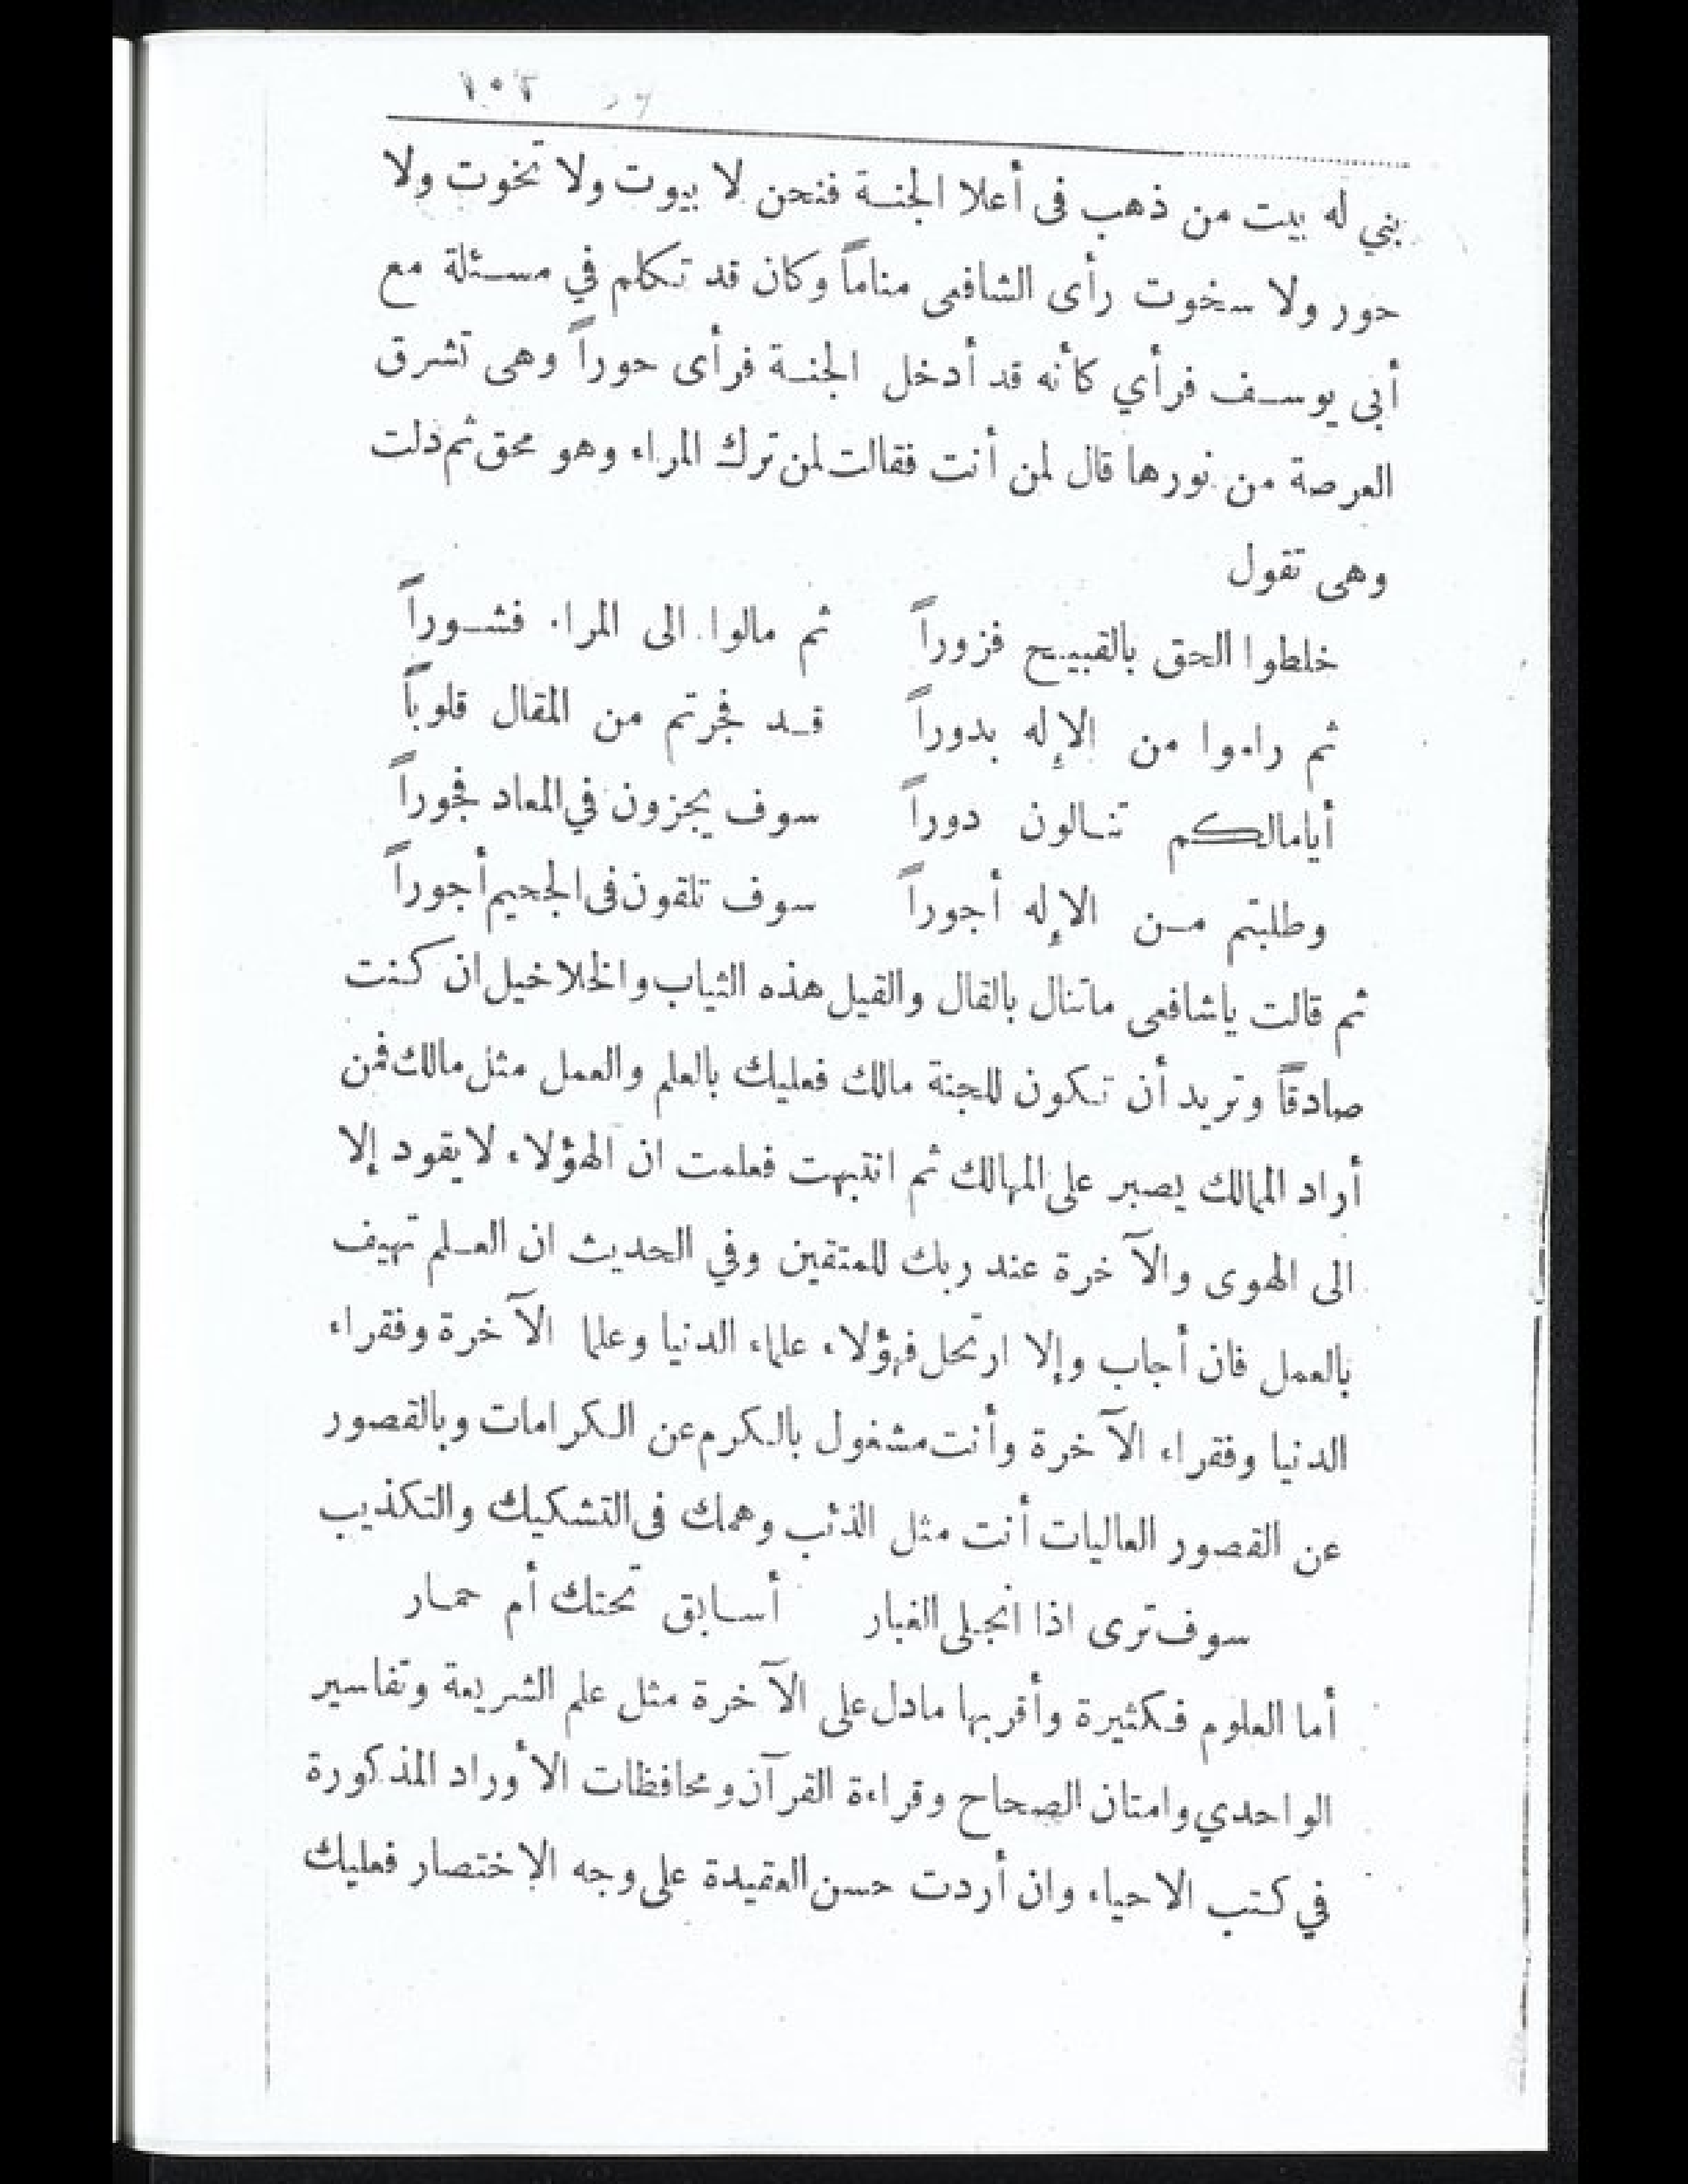 ١٠٢
بني له بيت من ذهب فى أعلا الجنة فنحن لا بيوت ولا تخوت ولا
حور ولا سخوت رأى الشافعى مناماً وكان قد تكلم في مسئلة مع
أبى يوسف فرأي كأنه قد أدخل الجنة فرأى حوراً وهى تشرق
العرصة من نورها قال لمن أنت فقالت لمن ترك المراء وهو محق ثم دلت
وهى تقول
خلطوا الحق بالقبيح فزوراً ثم مالوا الى المراء فشوراً
ثم راموا من الإله بدوراً قد فجرتم من المقال قلوباً
أيامالكم تنالون دوراً سوف يجزون في المعاد فجوراً
وطلبتم من الإله أجوراً سوف تلقون فى الجحيم أجوراً
ثم قالت ياشافعى ماتنال بالقال والقيل هذه الثياب والخلاخيل ان كنت
صادقاً وتريد أن تكون للجنة مالك فعليك بالعلم والعمل مثل مالك فمن
أراد الممالك يصبر على المهالك ثم انتبهت فعلمت ان الهؤلاء لا يقود إلا
الى الهوى والآخرة عند ربك للمتقين وفي الحديث ان العلم تهيف
بالعمل فان أجاب وإلا ارتحل فهؤلاء علماء الدنيا وعلما الآخرة وفقراء
الدنيا وفقراء الآخرة وأنت مشغول بالكرم عن الكرامات وبالقصور
عن القصور العاليات أنت مثل الذئب وهمك فى التشكيك والتكذيب
سوف ترى اذا انجلى الغبار أسابق تحتك أم حمار
أما العلوم فكثيرة وأقربها مادل على الآخرة مثل علم الشريعة وتفاسير
الواحدي وامتان الصحاح وقراءة القرآن ومحافظات الأوراد المذكورة
في كتب الاحياء وان أردت حسن العقيدة على وجه الإختصار فعليك